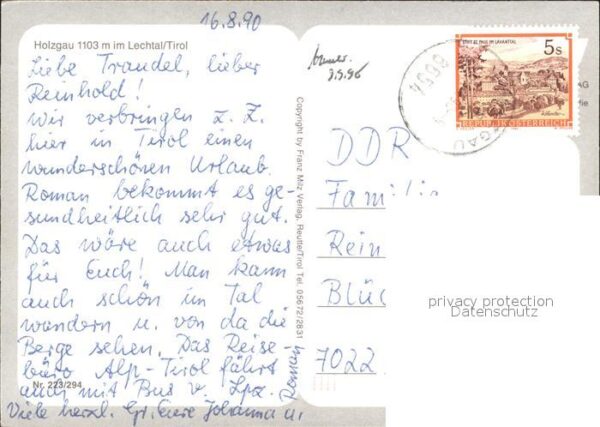 16.8.90
Holzgau 1103 m im Lechtal/Tirol
Liebe Traudel, lieber
Reinhold!
Wir verbringen z. Z.
hier in Tirol einen
wunderschönen Urlaub.
Roman bekommt es ge-
sundheitlich sehr gut.
Das wäre auch etwas
für Euch! Man kann
auch schön im Tal
wandern u. von da die
Berge sehen. Das Reise-
büro Alp-Tirol fährt
auch mit Bus v. Lpz.
Nr. 223/294
Viele herzl. Gr. Eure Johanna u.
Roman
Copyright by Franz Milz Verlag, Reutte/Tirol Tel. 05672/2831
6654
GAU
STIFT ST. PAUL IM LAVANTTAL
5s
REPUBLIK ÖSTERREICH
AG
DDR
Famili
Rein
Blüc
7022
privacy protection
Datenschutz